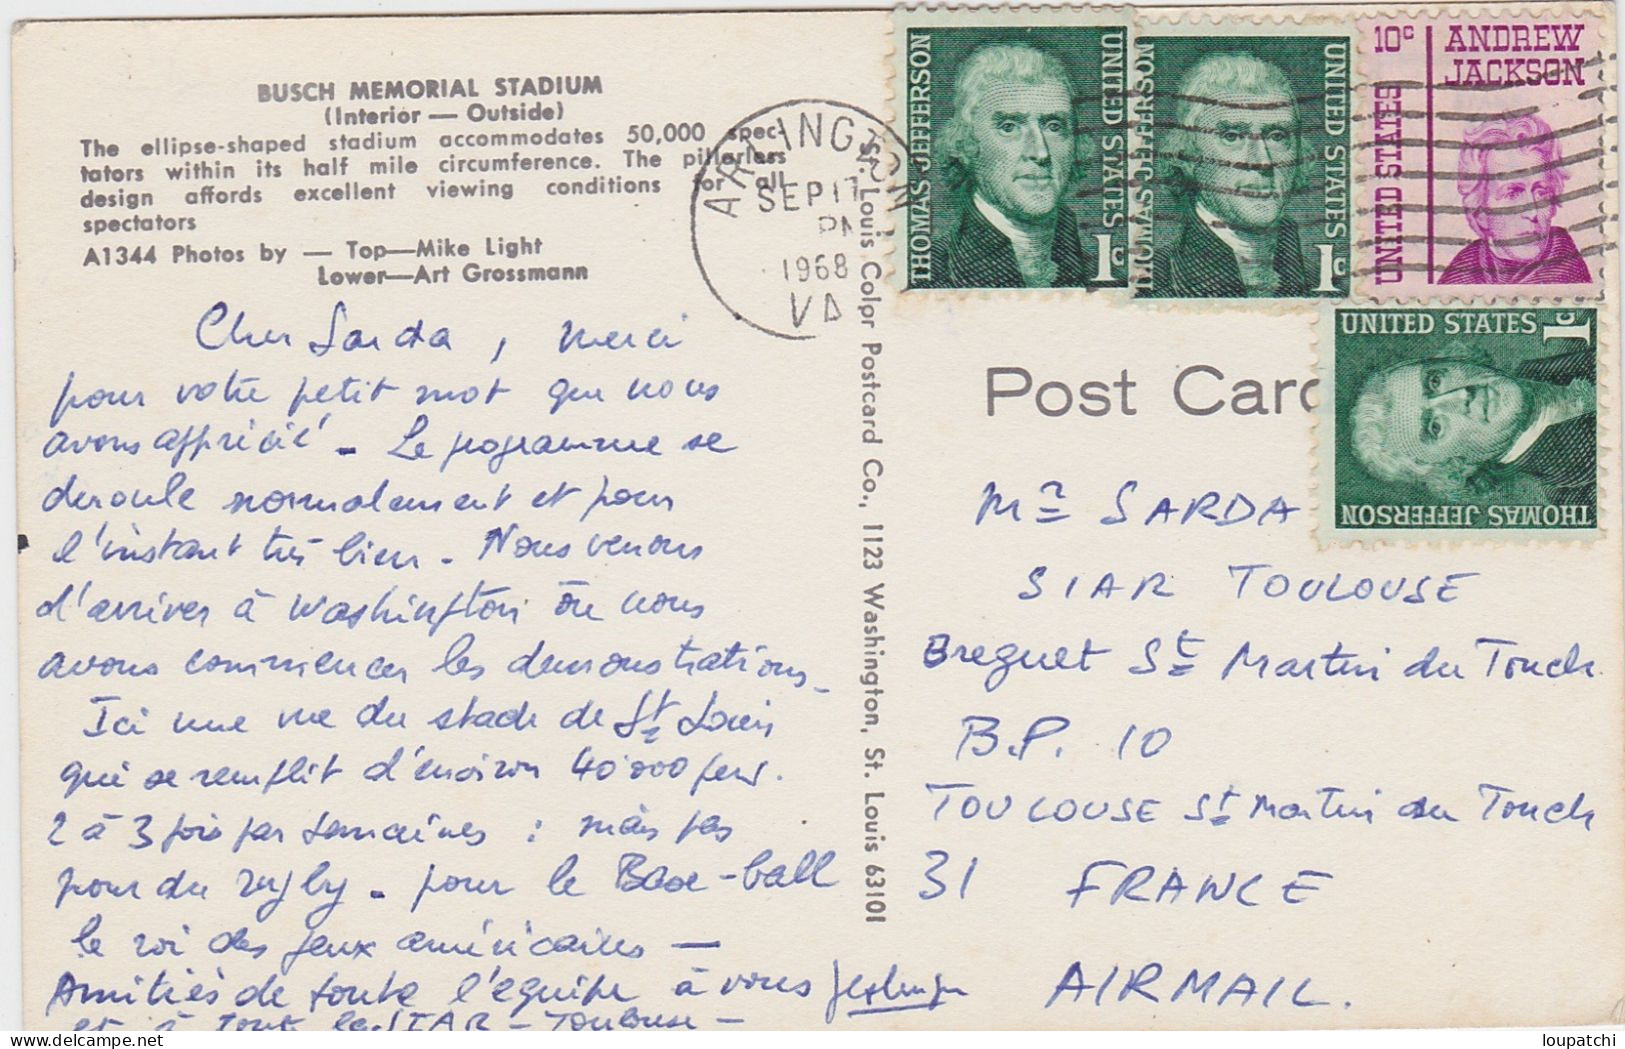 BUSCH MEMORIAL STADIUM
(Interior — Outside)
The ellipse-shaped stadium accommodates 50,000 spec-
tators within its half mile circumference. The pillarless
design affords excellent viewing conditions for all
spectators
A1344 Photos by — Top—Mike Light
Lower—Art Grossmann
Cher Sarda, merci
pour votre petit mot que nous
avons apprécié - Le programme se
deroule normalement et pour
l'instant très bien - Nous venons
d'arriver à Washington où nous
avons commencer les demonstrations -
Ici une vue du stade de St Louis
qui se remplit d'environ 40 000 pers.
2 à 3 fois par semaines : mais pas
pour du rugby - pour le Base-ball
le roi des jeux américaines —
Amitiés de toute l'equipe à vous
et à tout le SIAR - Toulouse -
St. Louis Color Postcard Co., 1123 Washington, St. Louis 63101
ARLINGTON
SEP 17
PM
1968
VA
THOMAS JEFFERSON
UNITED STATES
1c
THOMAS JEFFERSON
UNITED STATES
1c
10c ANDREW
JACKSON
UNITED STATES
UNITED STATES
1c
THOMAS JEFFERSON
Post Card
Mr SARDA
SIAR TOULOUSE
Breguet St Martin du Touch
B.P. 10
TOULOUSE St Martin du Touch
31 FRANCE
AIRMAIL.
delcampe.net
loupatchi